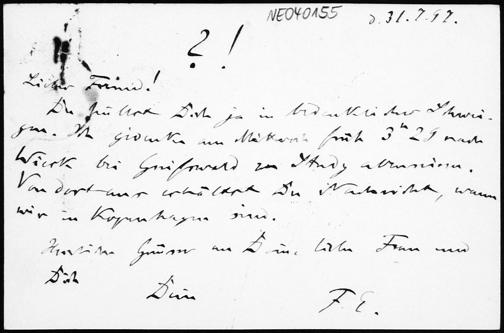 NE040155
d. 31.7.97.
? !
Lieber Freund!
Du hüllst Dich ja in bedenkliches Schwei-
gen. Ich gedenke am Mittwoch früh 3h 29 nach
Wieck bei Greifswald zu Study abzureisen.
Von dort aus erhältst Du Nachricht, wann
wir in Kopenhagen sind.
Herzliche Grüsse an Deine liebe Frau und
Dich
Dein
F. E.